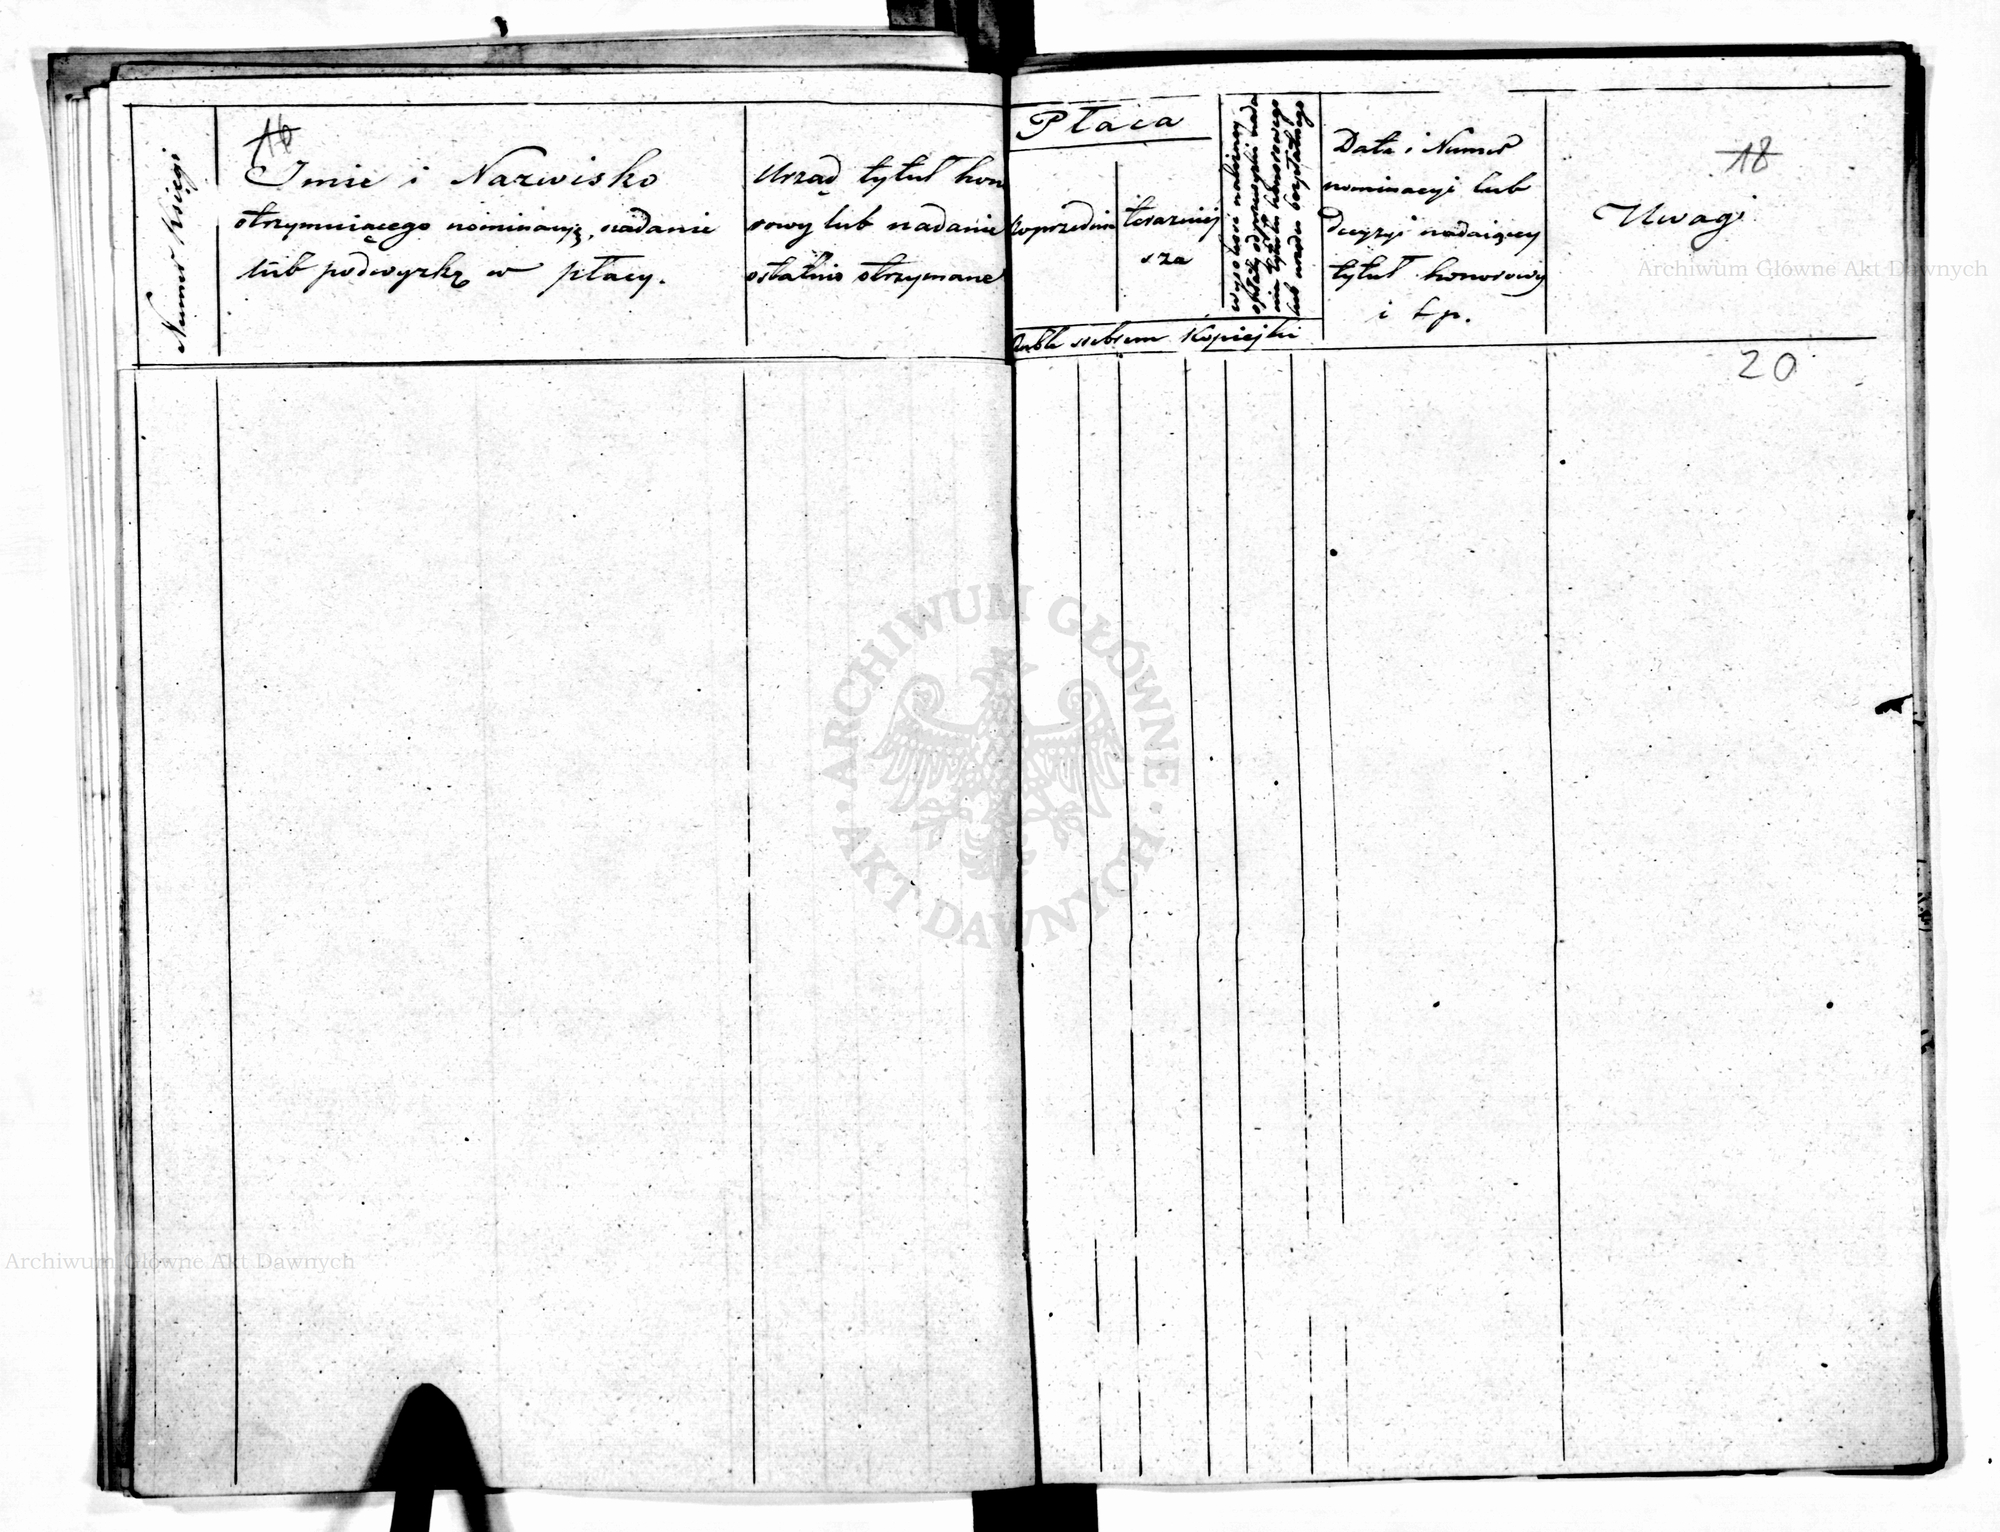 16
Numer Księgi
Imie i Nazwisko
otrzymuiącego nominacyę, nadanie
lub podwyżkę w płacy.
Urząd tytuł hon
rowy lub nadanie
ostatnio otrzymane
Płaca
poprzednia
teraźniej
sza
opłaty od
nia tytułu honorowego
lub urzędu bezpłatnego
Ruble srebrem Kopiejki
Data i Numer
nominacyi lub
Decyzyi nadaiącey
tytuł honorowy
i t.p.
18
Uwagi
20
Archiwum Główne Akt Dawnych
ARCHIWUM GŁÓWNE
AKT DAWNYCH
Archiwum Główne Akt Dawnych